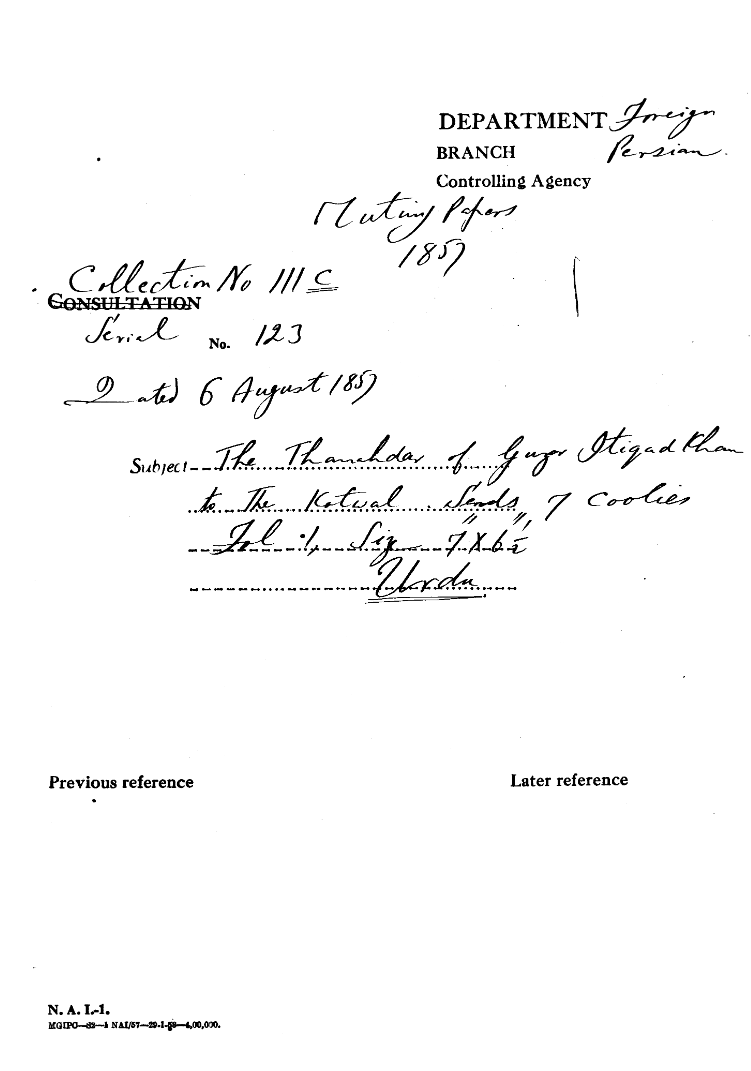 DEPARTMENT Foreign
BRANCH Persian.
Controlling Agency
Mutiny Papers
1857
Collection No 111 C
CONSULTATION
Serial No. 123
Dated 6 August 1857
Subject The Thanahdar of Guzer Itiqad Khan
to The Kotwal. Sends 7 Coolies
Fol. 1, Siz 7" X 6½"
Urdu
Previous reference
Later reference
N. A. I.-1.
MGIPC—S2—1 NAI/57—29-1-58—4,00,000.